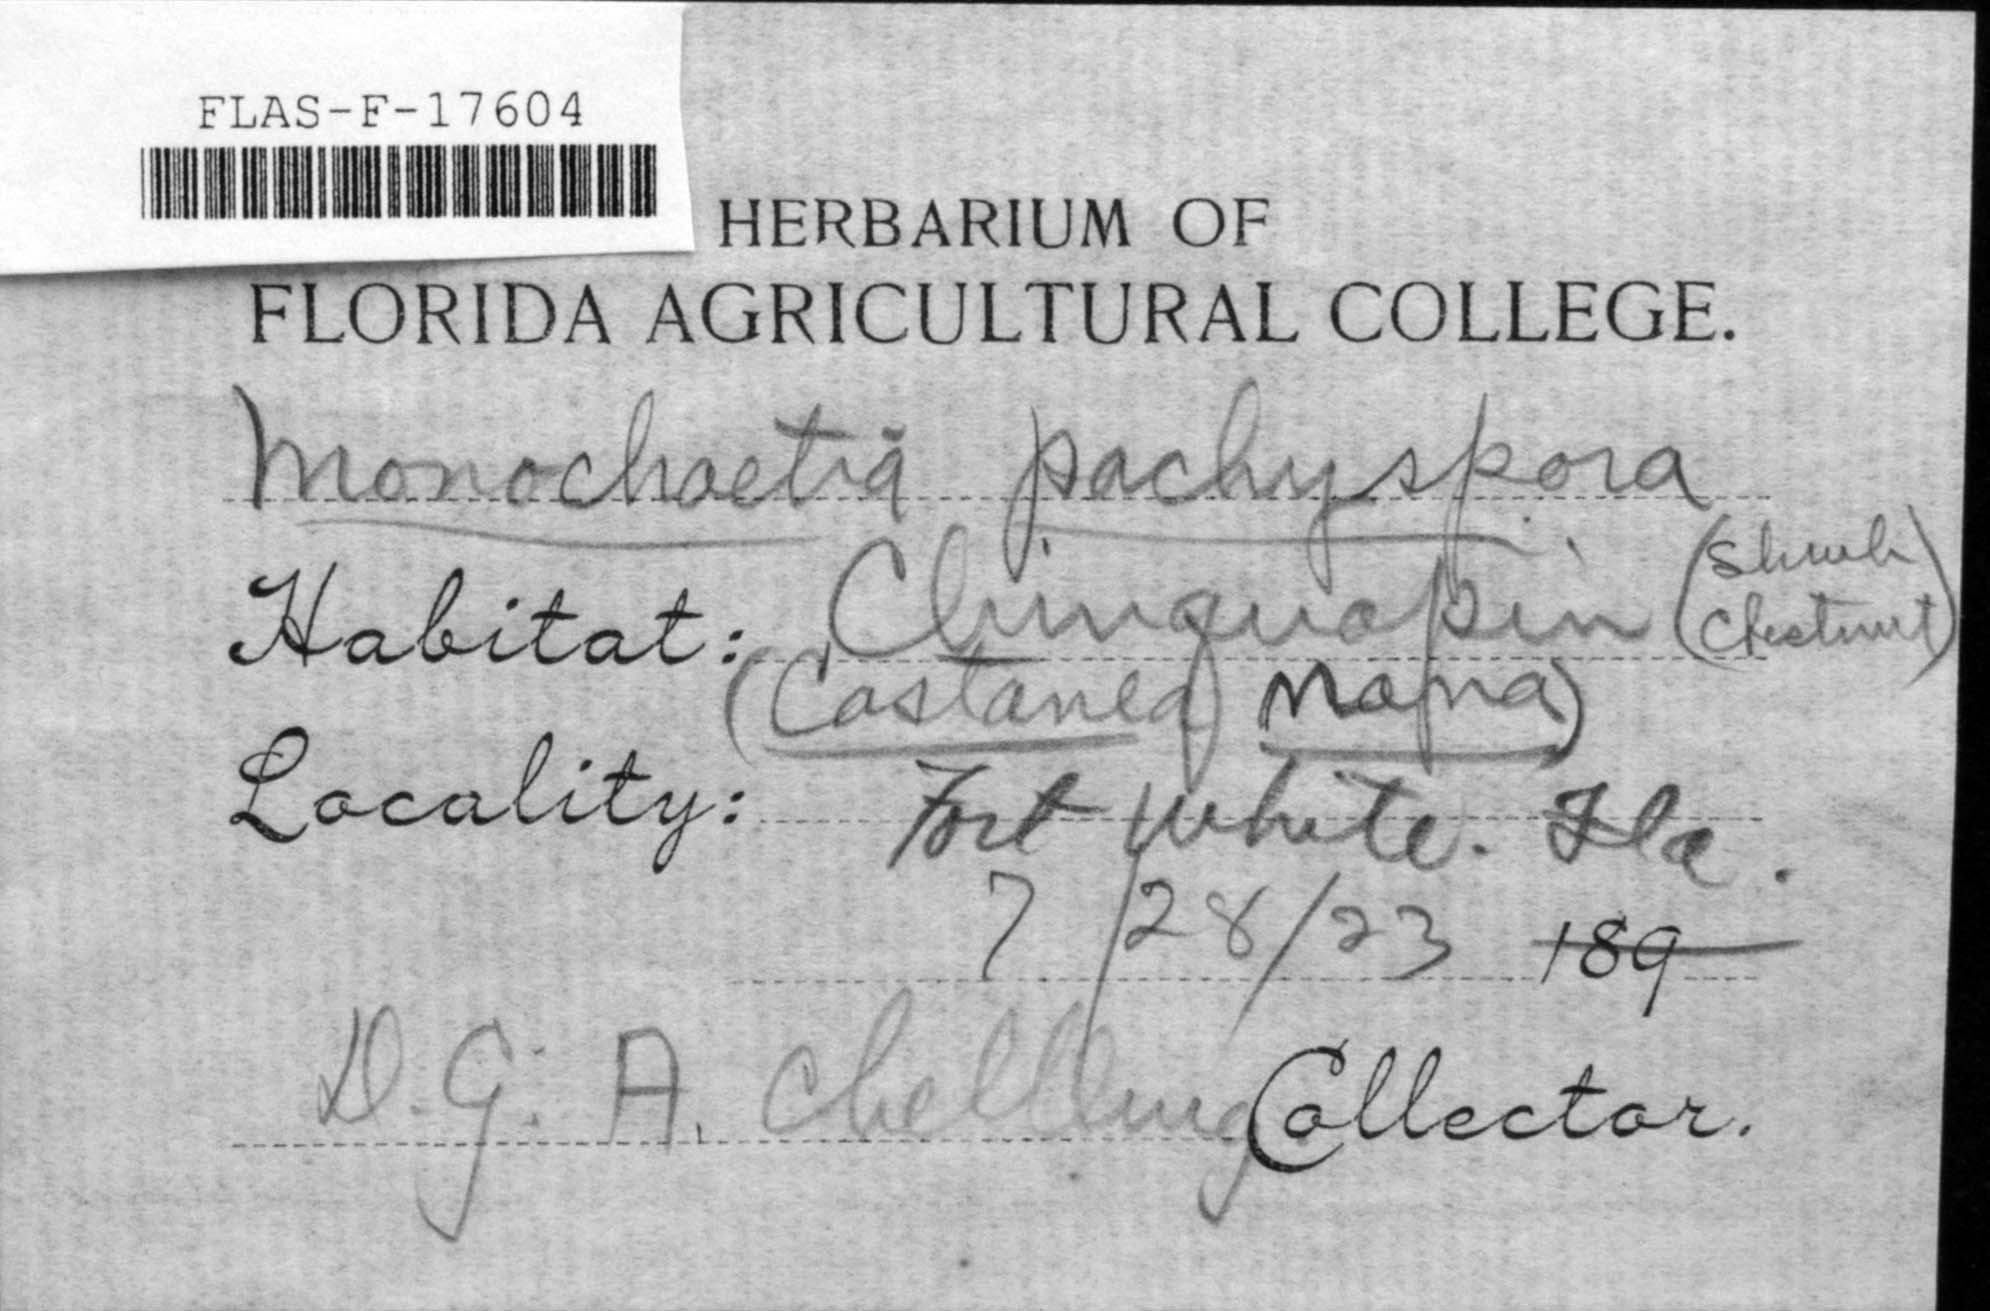 FLAS-F-17604
HERBARIUM OF
FLORIDA AGRICULTURAL COLLEGE.
Monochaetia pachyspora
Habitat: Chinquapin (Shrub
Chestnut)
(Castanea nana)
Locality: Fort White. Fla.
7/28/23 189
D. G. A. Kelbert Collector.